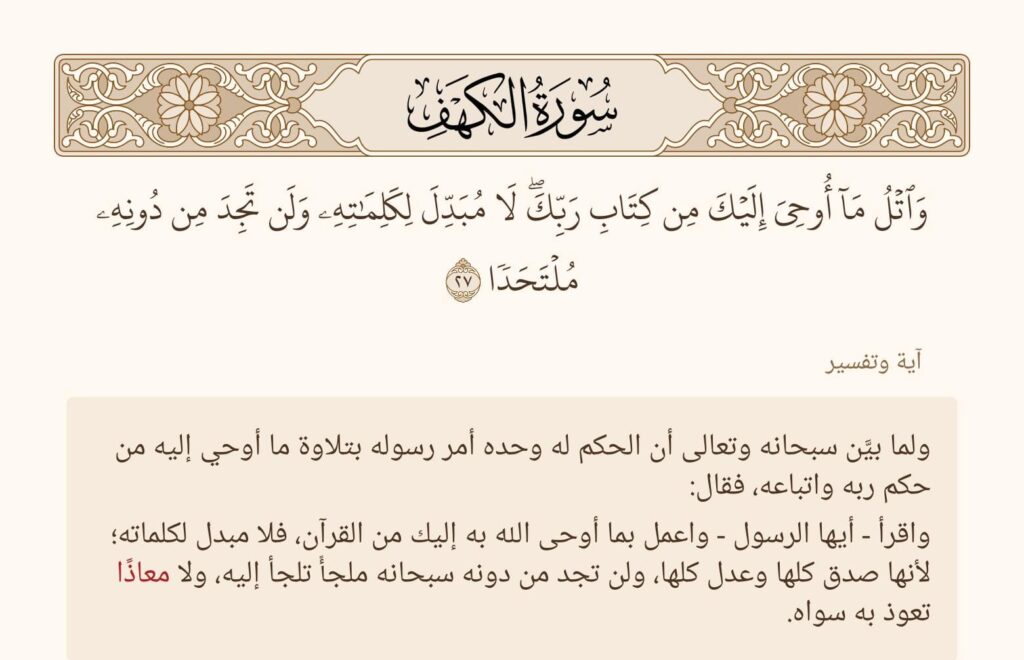 سُورَةُ الكَهۡفِ
وَٱتۡلُ مَآ أُوحِيَ إِلَيۡكَ مِن كِتَابِ رَبِّكَۖ لَا مُبَدِّلَ لِكَلِمَٰتِهِۦ وَلَن تَجِدَ مِن دُونِهِۦ
مُلۡتَحَدٗا ٢٧
آية وتفسير
ولما بيَّن سبحانه وتعالى أن الحكم له وحده أمر رسوله بتلاوة ما أوحي إليه من
حكم ربه واتباعه، فقال:
واقرأ - أيها الرسول - واعمل بما أوحى الله به إليك من القرآن، فلا مبدل لكلماته؛
لأنها صدق كلها وعدل كلها، ولن تجد من دونه سبحانه ملجأً تلجأ إليه، ولا معاذًا
تعوذ به سواه.